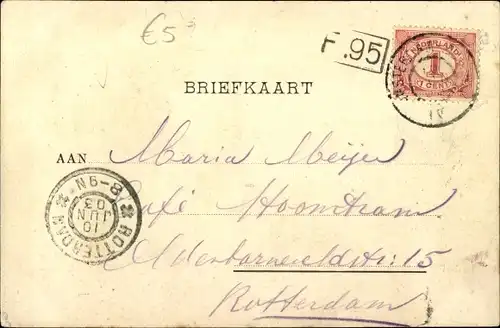 €5
F.95
NEDERLAND
1
1 CENT
BRIEFKAART
AAN Maria Meijer
Café Stoomtram
Oldenbarneveldtstr: 15
Rotterdam
ROTTERDAM
8-9N
10
JUN
03